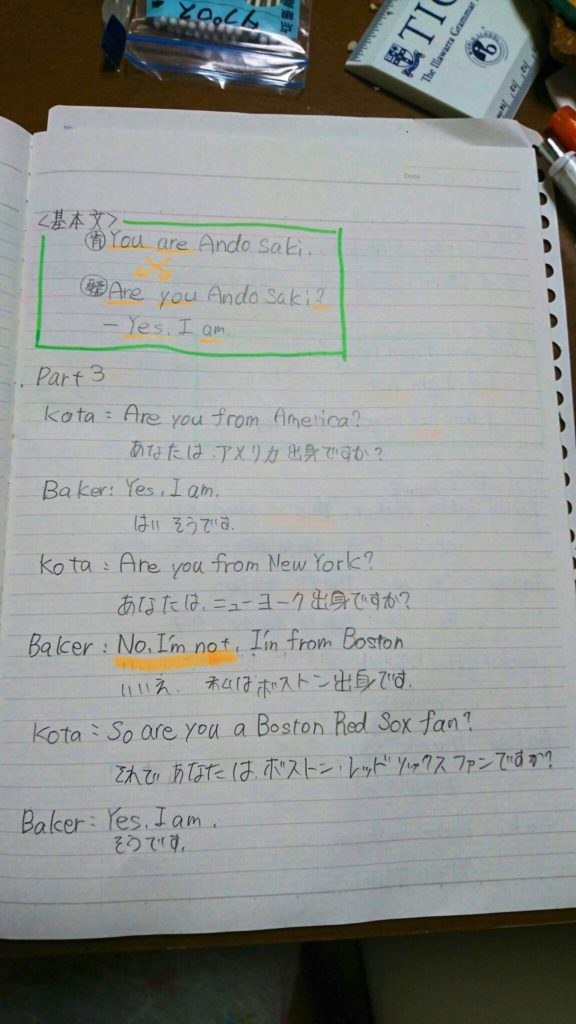 タプロス
TIG
The Illawarra Grammar
Date
<基本文>
肯 You are Ando Saki.
疑 Are you Ando Saki?
- Yes, I am.
Part 3
Kota: Are you from America?
あなたは、アメリカ出身ですか?
Baker: Yes, I am.
はい そうです。
Kota: Are you from New York?
あなたは、ニューヨーク出身ですか?
Baker: No, I'm not. I'm from Boston
いいえ、 私はボストン出身です。
Kota: So are you a Boston Red Sox fan?
それで あなたは、ボストン・レッドソックスファンですか?
Baker: Yes, I am.
そうです。